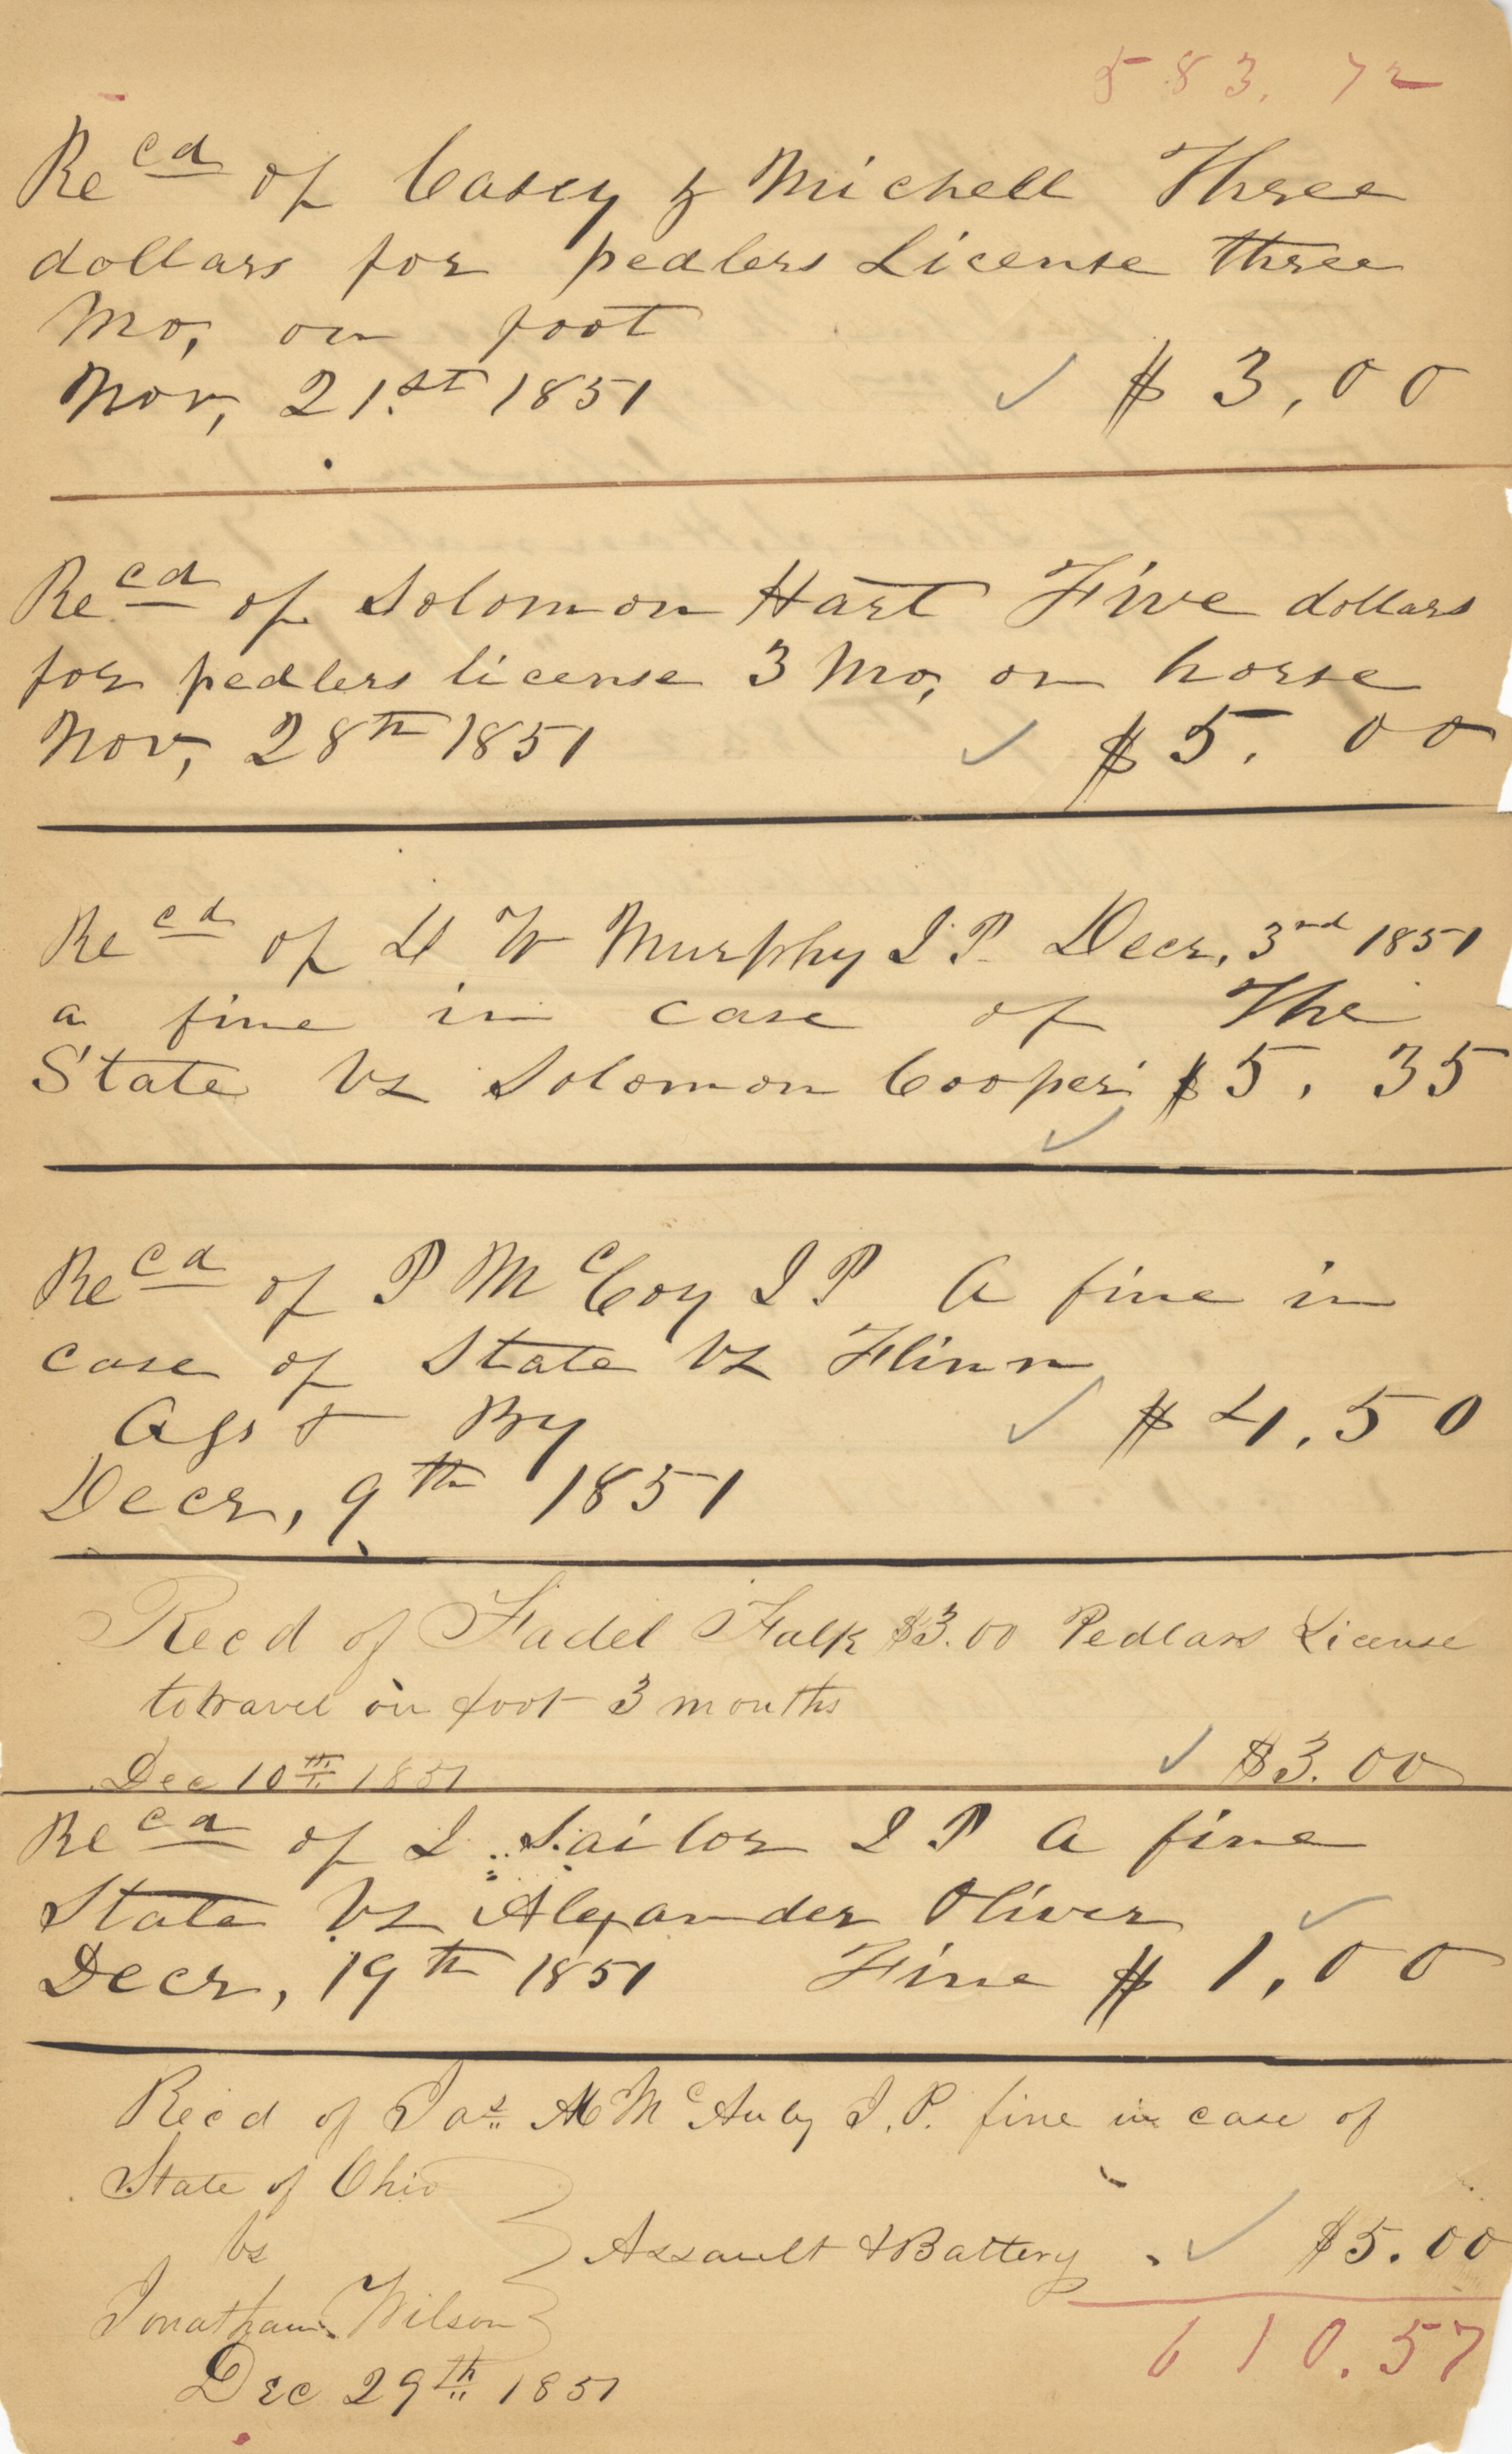 583.72
Recd of Casey & Michell Three
dollars for pedlers License three
Mo, on foot
Nov, 21st 1851 ✓ $3,00
Recd of Solomon Hart Five dollars
for pedlers license 3 Mo, on horse
Nov, 28th 1851 ✓ $5.00
Recd of W Murphy J P Decr, 3rd 1851
a fine in case of The
State Vs Solomon Cooper $5.35
✓
Recd of P McCoy J P A fine in
case of State Vs Flinn
✓ $4.50
Decr, 9th 1851
Recd of Fadel Falk $3.00 Pedlars License
to travel on foot 3 months
Dec 10th 1851 ✓ $3.00
Recd of J. Sailor J P A fine
State Vs Alexander Oliver ✓
Decr, 19th 1851 Fine $1,00
Recd of Jas McAuly J.P. fine in case of
State of Ohio
Vs } Assault & Battery ✓ $5.00
Jonathan Wilson
610.57
Dec 29th 1851